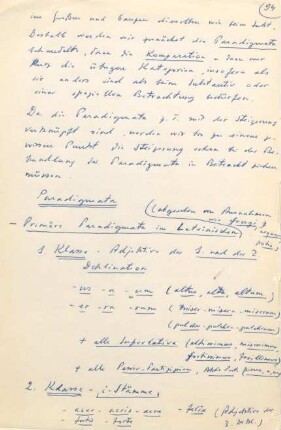 94
im großen und ganzen dieselben wie beim Subst.
Deshalb werden wir zunächst die Paradigmata
behandeln, dann die Komparation u. dann nur
kurz die übrigen Kategorien, insofern als
sie anders sind als beim Substantiv oder
einer speziellen Betrachtung bedürfen.
Da die Paradigmata z.T. mit der Steigerung
verknüpft sind, werden wir bis zu einem ge-
wissen Punkt die Steigerung schon bei der Be-
handlung der Paradigmata in Betracht ziehen
müssen.
Paradigmata
(abgesehen von Ausnahmen
wie
– Primäre Paradigmata im Lateinischen)
1. Klasse - Adjektive der 1. und der 2.
Deklination
-us -a -um (altus, alta, altum)
-er -ra -rum (miser - misera - miserum)
(pulcher - pulchra - pulchrum)
+ alle Superlative (altissimus, miserrimus,
facillimus)
+ alle
2. Klasse - i-Stämme,
- acer - acris - acre - felix (Adjektive der
3. Dekl.)
- fortis - forte